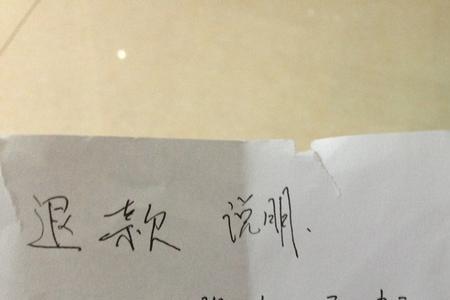 退款说明.